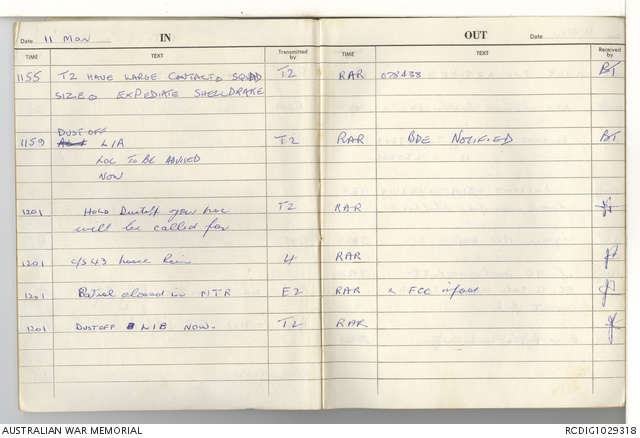 Date 11 Mon IN
OUT Date
TIME TEXT Transmitted by TIME TEXT Received by
1155 T2 HAVE LARGE CONTACT. SQUAD T2 RAR 078438 BT
SIZE. EXPEDIATE SHELLDRAKE
DUST OFF
1159 L1A T2 RAR BDE NOTIFIED BT
LOC TO BE ADVISED
NOW
1201 Hold Dustoff your loc T2 RAR
will be called for
1201 c/s 43 have 4 RAR
1201 Patrol closed in NTR E2 RAR FCC
1201 DUSTOFF L1B NOW. T2 RAR
AUSTRALIAN WAR MEMORIAL RCDIG1029318